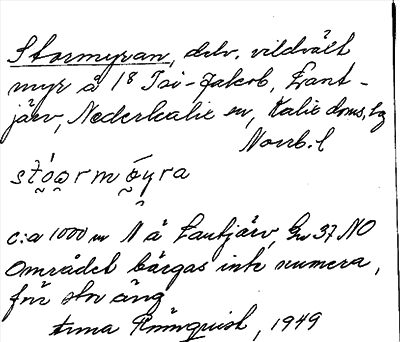 Stormyran, delv. vildvält
myr å 1⁸ Tai-Jakob, Lant-
järv, Nederkalix sn, Kalix doms.lg
Norrb. l
stóərmøyra
c:a 1000 m N å Lantjärv, Gw 37 NO
Området bärgas inte numera,
för stor äng
Anna Rönnquist, 1949